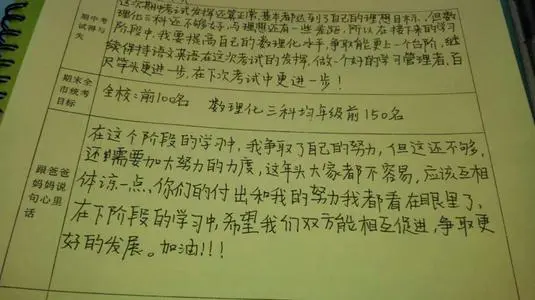 期中考
试得与
失
这次期中考试发挥还算正常,基本都达到了自己的理想目标,但数
理化三科还不够好,与理想还有一些差距,所以在接下来的学习
阶段中,我要提高自己的数理化水平,争取能更上一个台阶,继
续保持语文英语在这次考试的发挥,做一个好的学习管理者,百
尺竿头更进一步,在下次考试中更进一步!
期末全
市统考
目标
全校:前100名 数理化三科均年级前150名
跟爸爸
妈妈说
句心里
话
在这个阶段的学习中,我争取了自己的努力,但这还不够,
还需要加大努力的力度,这年头大家都不容易,应该互相
体谅一点、你们的付出和我的努力我都看在眼里了,
在下阶段的学习中,希望我们双方能相互促进,争取更
好的发展。加油!!!